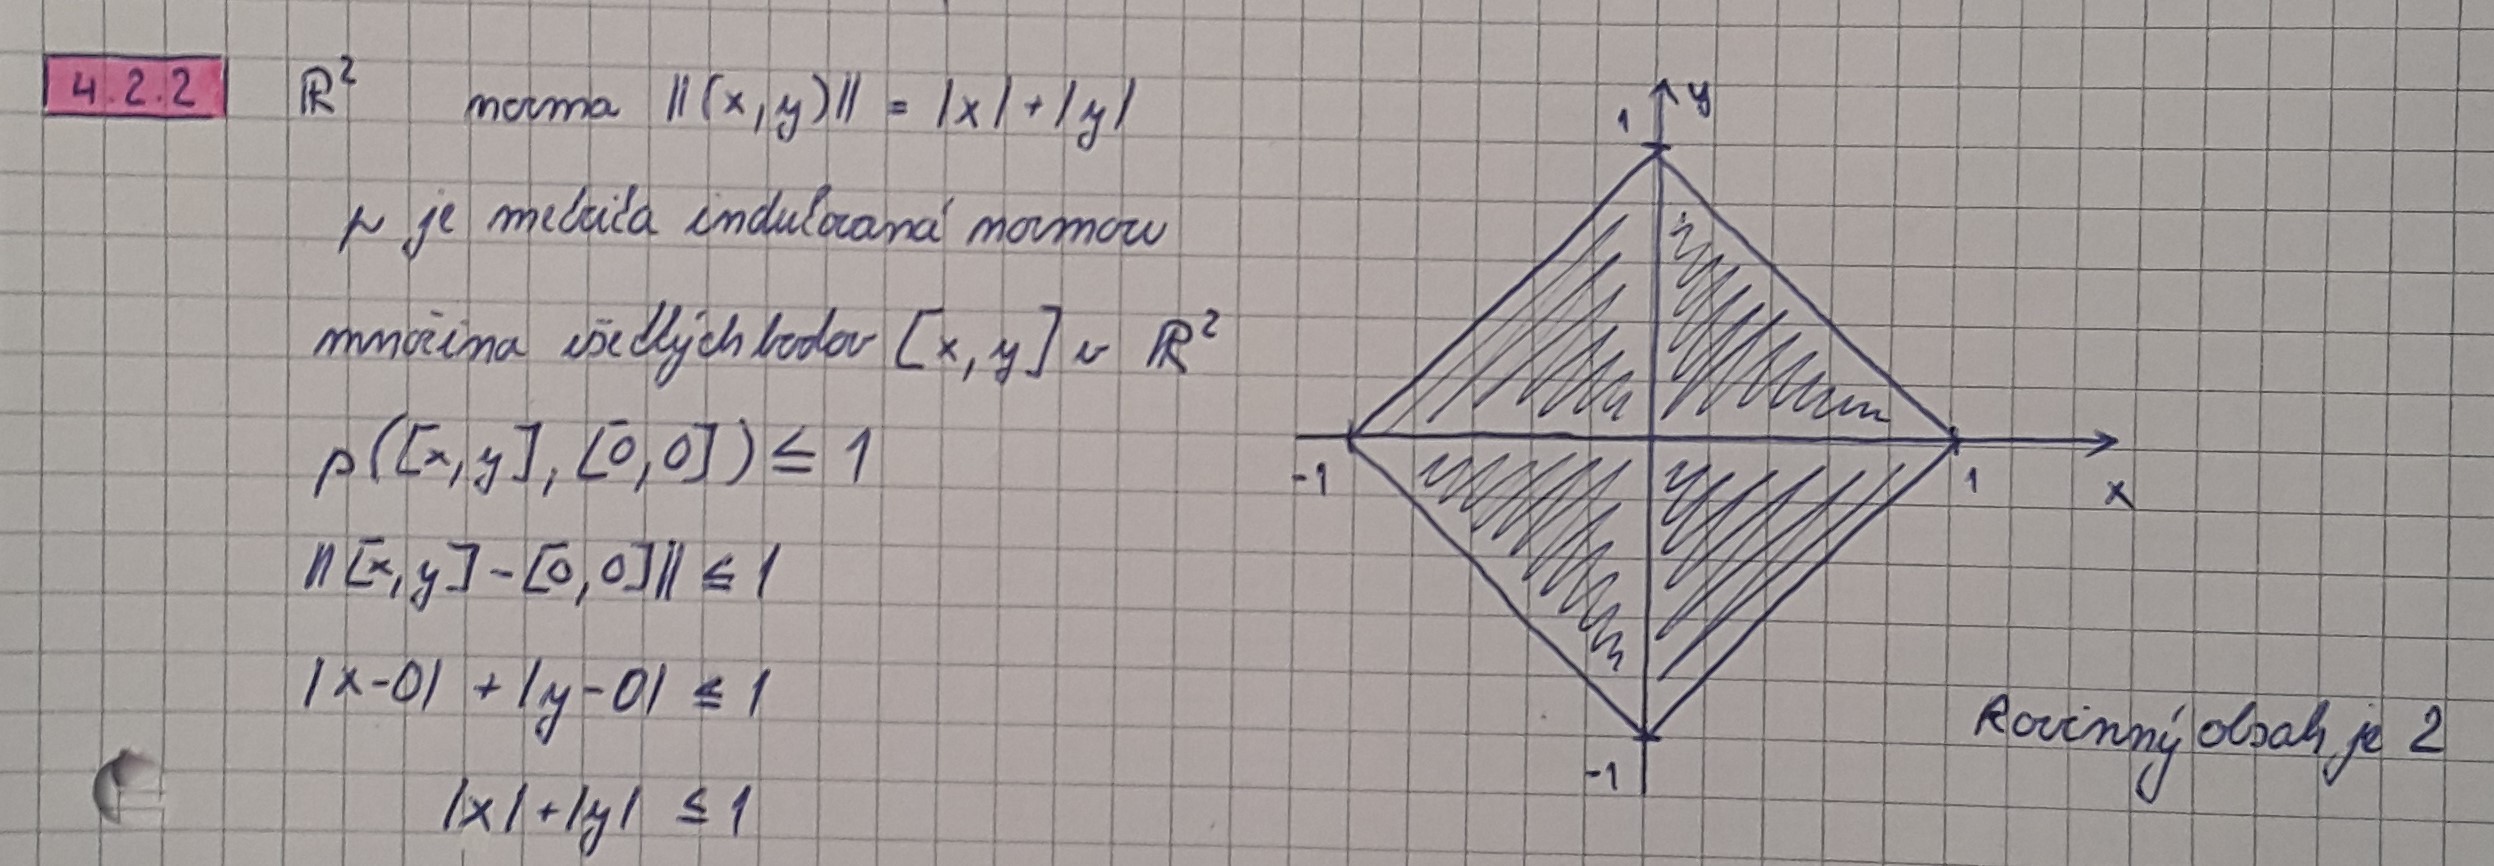 4.2.2 ℝ² norma ||(x,y)|| = |x|+|y|
ρ je metrika indukovaná normou
množina všetkých bodov [x,y] v ℝ²
ρ([x,y],[0,0]) ≤ 1
||[x,y]-[0,0]|| ≤ 1
|x-0| + |y-0| ≤ 1
|x|+|y| ≤ 1
y
1
-1
1
x
-1
Rovinný obsah je 2